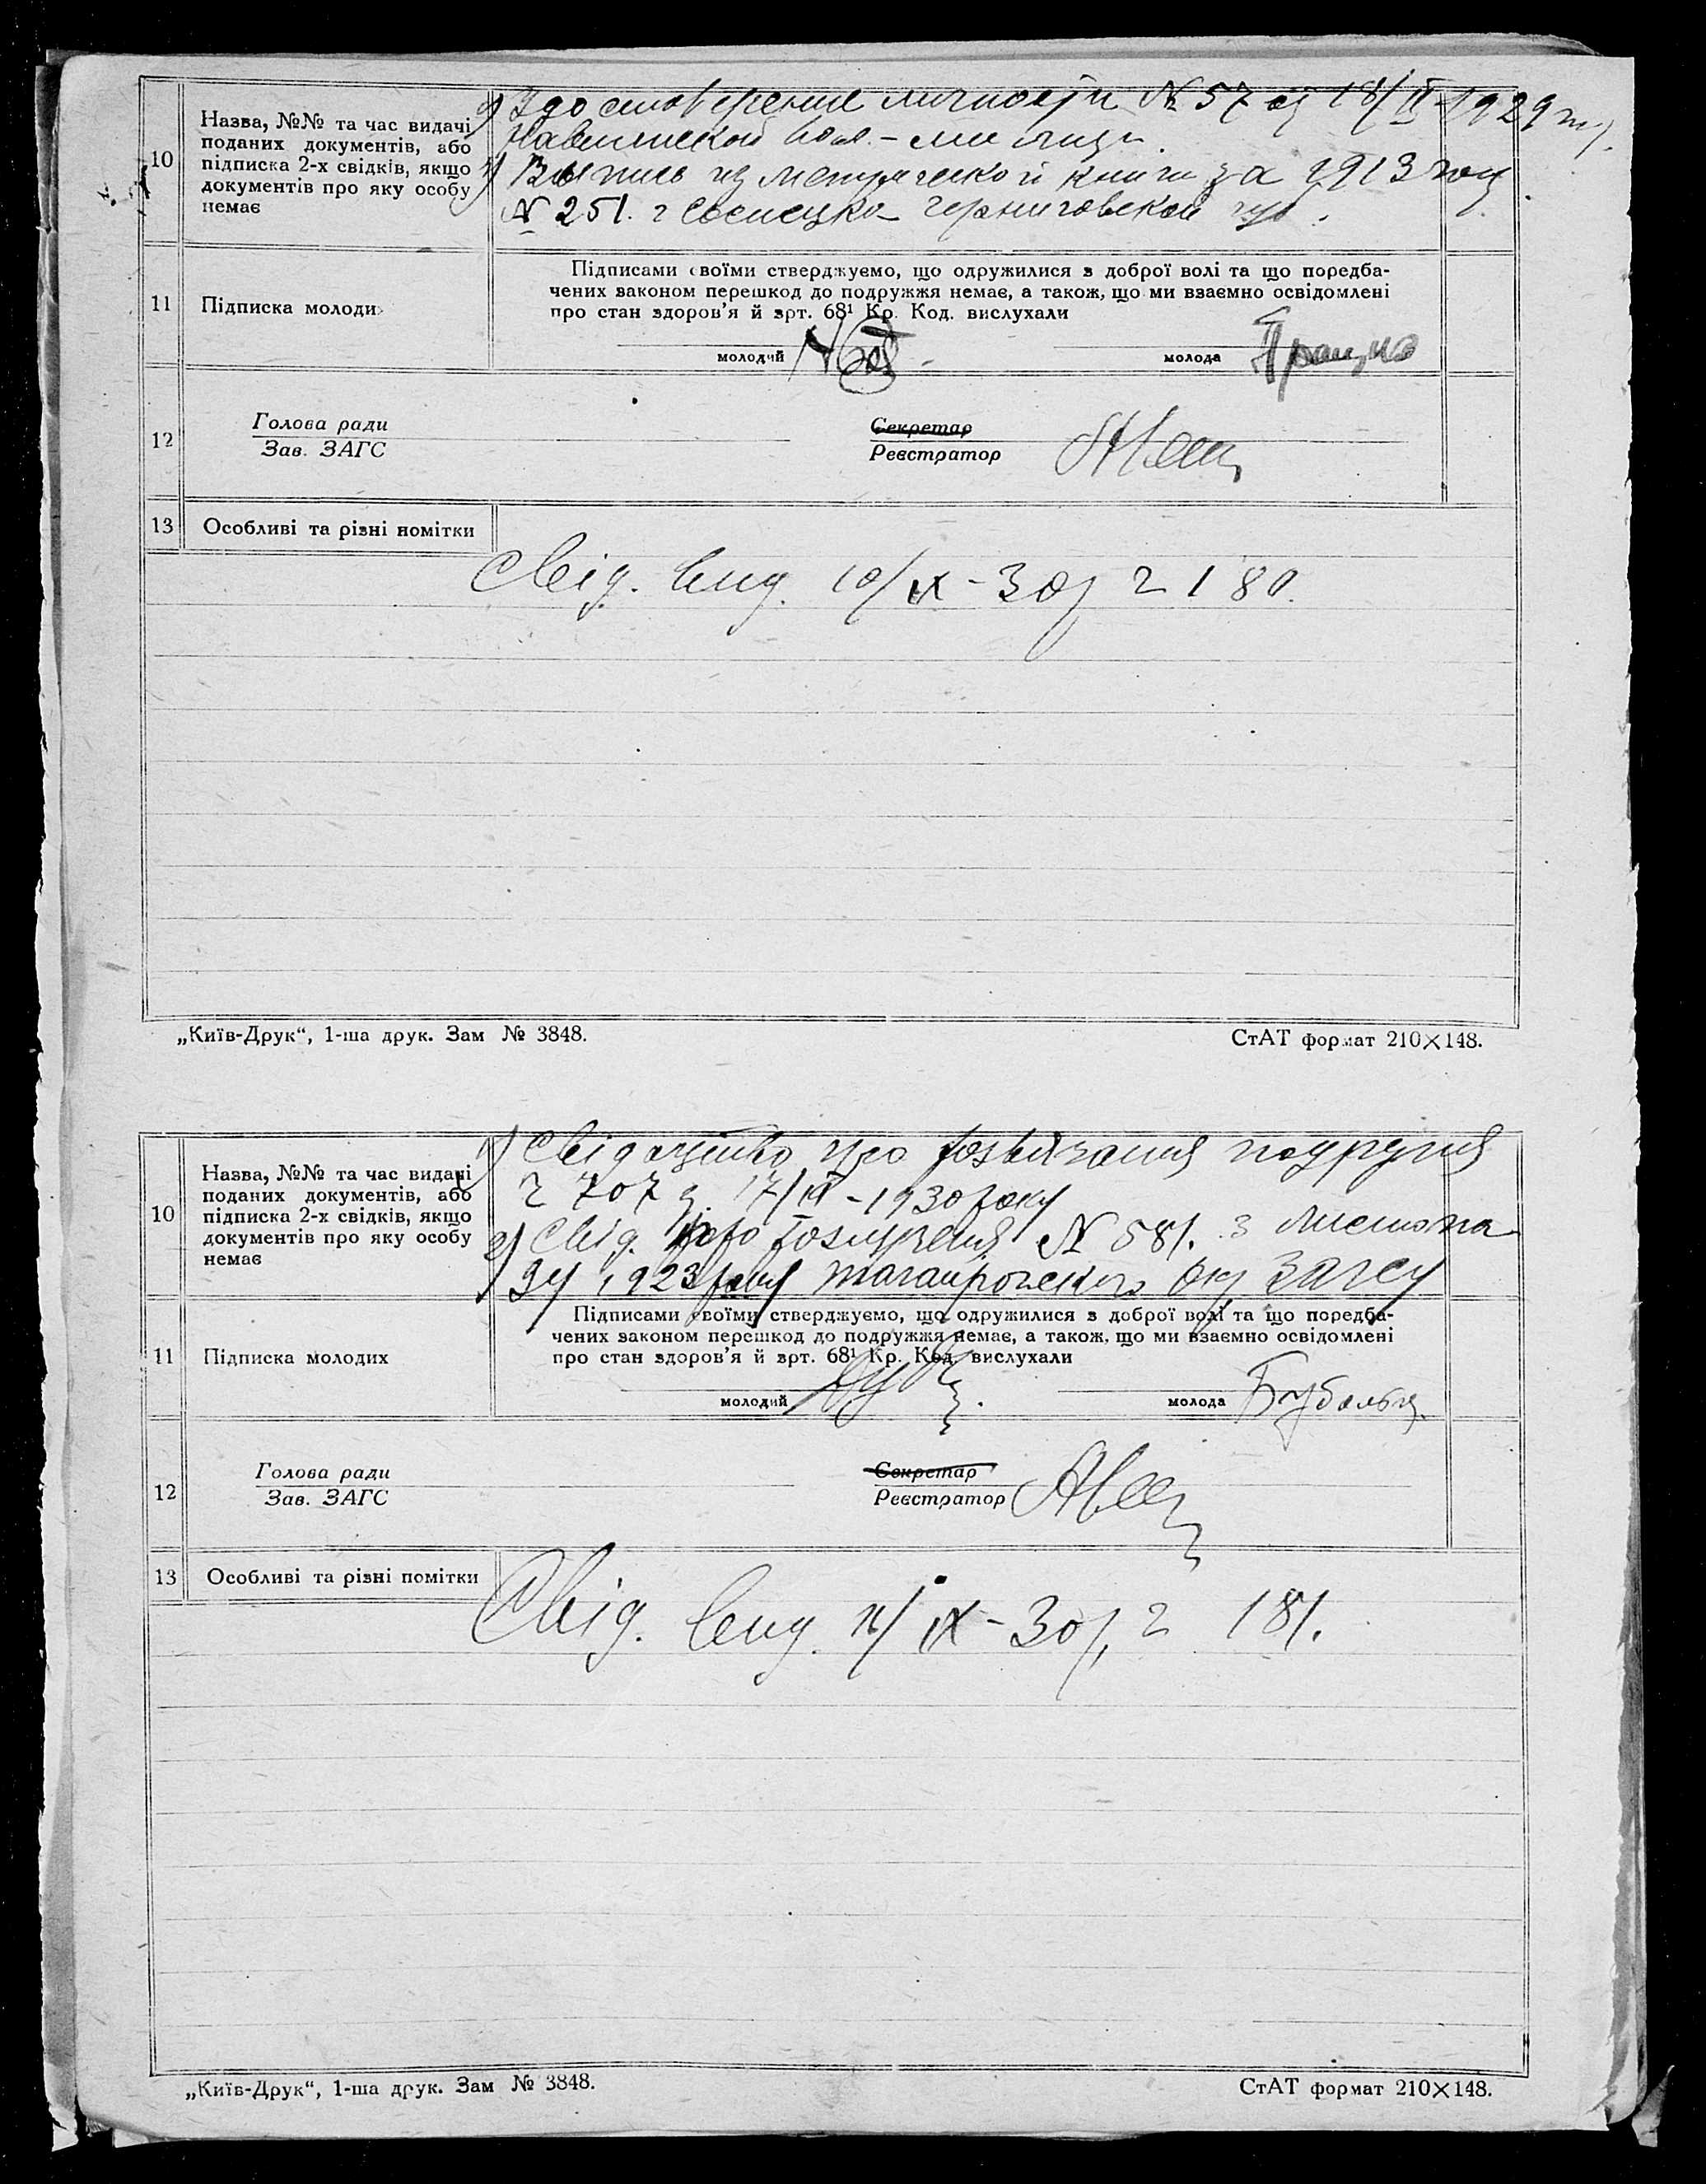 10
Назва, №№ та час видачі
поданих документів, або
підписка 2-х свідків, якщо
документів про яку особу
немає
личности № 57 от 18/II-1929
Выпись из метрической книги за 1913 год
№ 251. г Черниговской губ.
11
Підписка молодих
Підписами своїми стверджуємо, що одружилися з доброї волі та що поредба-
чених законом перешкод до подружжя немає, а також, що ми взаємно освідомлені
про стан здоров'я й зрт. 68¹ Кр. Код. вислухали
молодий
молода
12
Голова ради
Зав. ЗАГС
Секретар
Реєстратор
13
Особливі та різні помітки
Свід. вид. 10/IX-30 р ч 180.
„Київ-Друк“, 1-ша друк. Зам № 3848.
СтАТ формат 210×148.
10
Назва, №№ та час видачі
поданих документів, або
підписка 2-х свідків, якщо
документів про яку особу
немає
1) Свідоцтво про розвязання
ч 707 з 17/ -1930 року
2) Свід. про № 581. з листопа
1923 року Таганрожского Окр ЗАГСу
11
Підписка молодих
Підписами своїми стверджуємо, що одружилися з доброї волі та що поредба-
чених законом перешкод до подружжя немає, а також, що ми взаємно освідомлені
про стан здоров'я й зрт. 68¹ Кр. Код. вислухали
молодий
молода
12
Голова ради
Зав. ЗАГС
Секретар
Реєстратор
13
Особливі та різні помітки
Свід. вид. IX-30 р, ч 181.
„Київ-Друк“, 1-ша друк. Зам № 3848.
СтАТ формат 210×148.